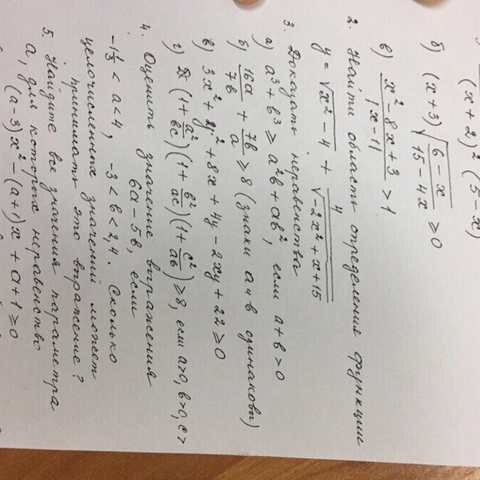 (x+2)² (5-x)
б) (x+3)√((6-x)/(15-4x)) ≥ 0
в) (x²-8x+3)/|x-1| > 1
2. Найти область определения функции
y = √(x²-4) + 4/√(-2x²+x+15)
3. Доказать неравенства
а) a³+b³ ≥ a²b+ab², если a+b>0
б) 16a/7b + 7b/a ≥ 8 (знаки a и b одинаковы)
в) 3x²+y²+8x+4y-2xy+22 ≥ 0
г) (1+a²/bc)(1+b²/ac)(1+c²/ab) ≥ 8, если a>0, b>0, c>
4. Оценить значение выражения
6a-5b, если
-1⅓ < a < 4, -3 < b < 2,4. Сколько
целочисленных значений может
принимать это выражение?
5. Найдите все значения параметра
a, для которых неравенство
(a-3)x²-(a+1)x+a+1 ≥ 0